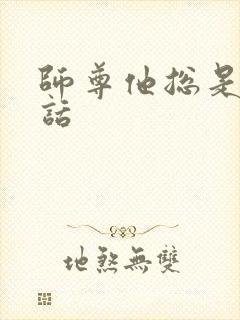 師尊他總是
話
地煞無雙